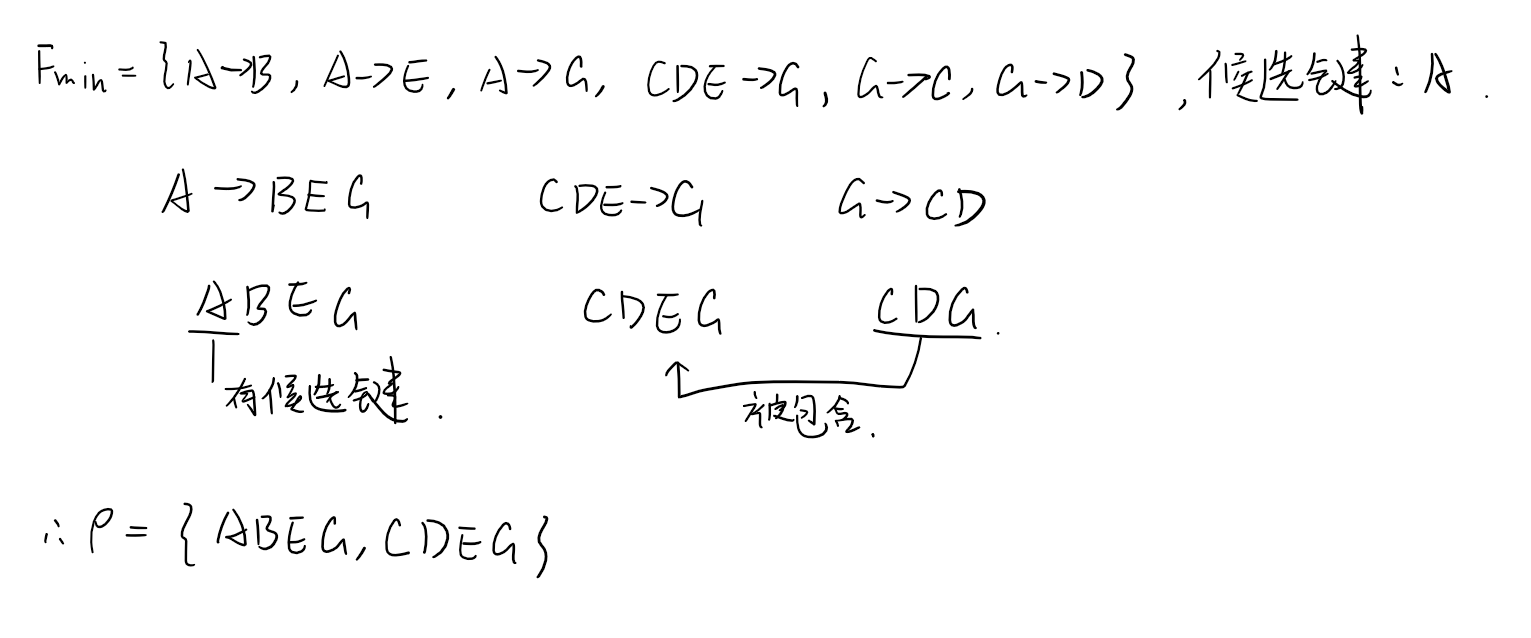 Fmin = {A→B, A→E, A→G, CDE→G, G→C, G→D}, 候选键: A.
A→BEG CDE→G G→CD
ABEG CDEG CDG.
有候选键.
被包含.
∴ ρ = {ABEG, CDEG}